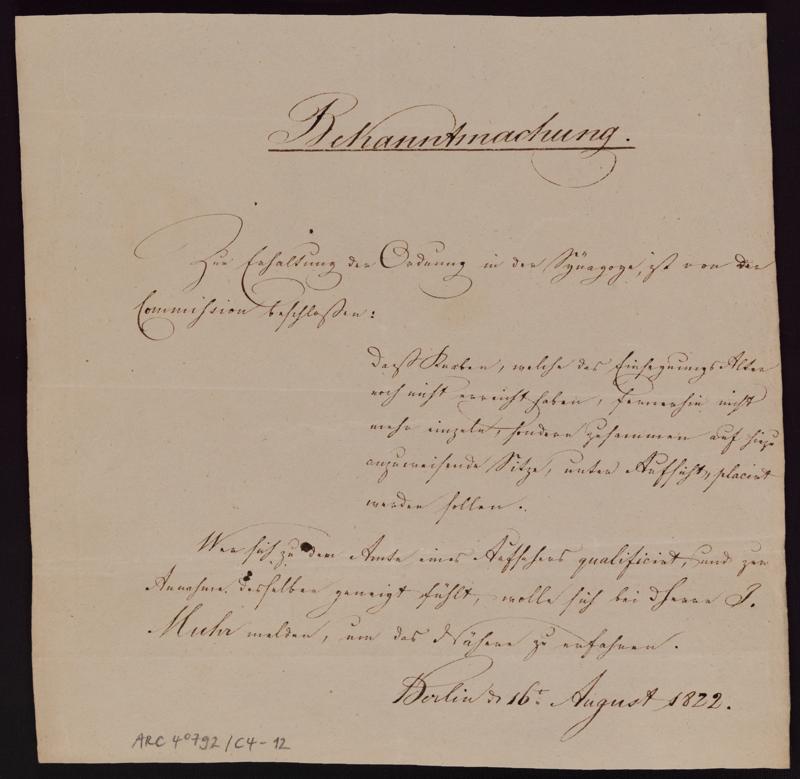 Bekanntmachung.
Zur Erhaltung der Ordnung in der Synagoge, ist von der
Commission beschlossen:
dass Knaben, welche das Einsegnungs Alter
noch nicht erreicht haben, fernerhin nicht
mehr einzeln, sondern zusammen auf hiezu
anzuweisende Sitze, unter Aufsicht, placirt
werden sollen.
Wer sich zu dem Amte eines Aufsehers qualificirt, und zur
Annahme desselben geneigt fühlt, wolle sich bei Herrn J.
Muhr melden, um das Nähere zu erfahren.
Berlin d 16t August 1822.
ARC 4°792/C4-12